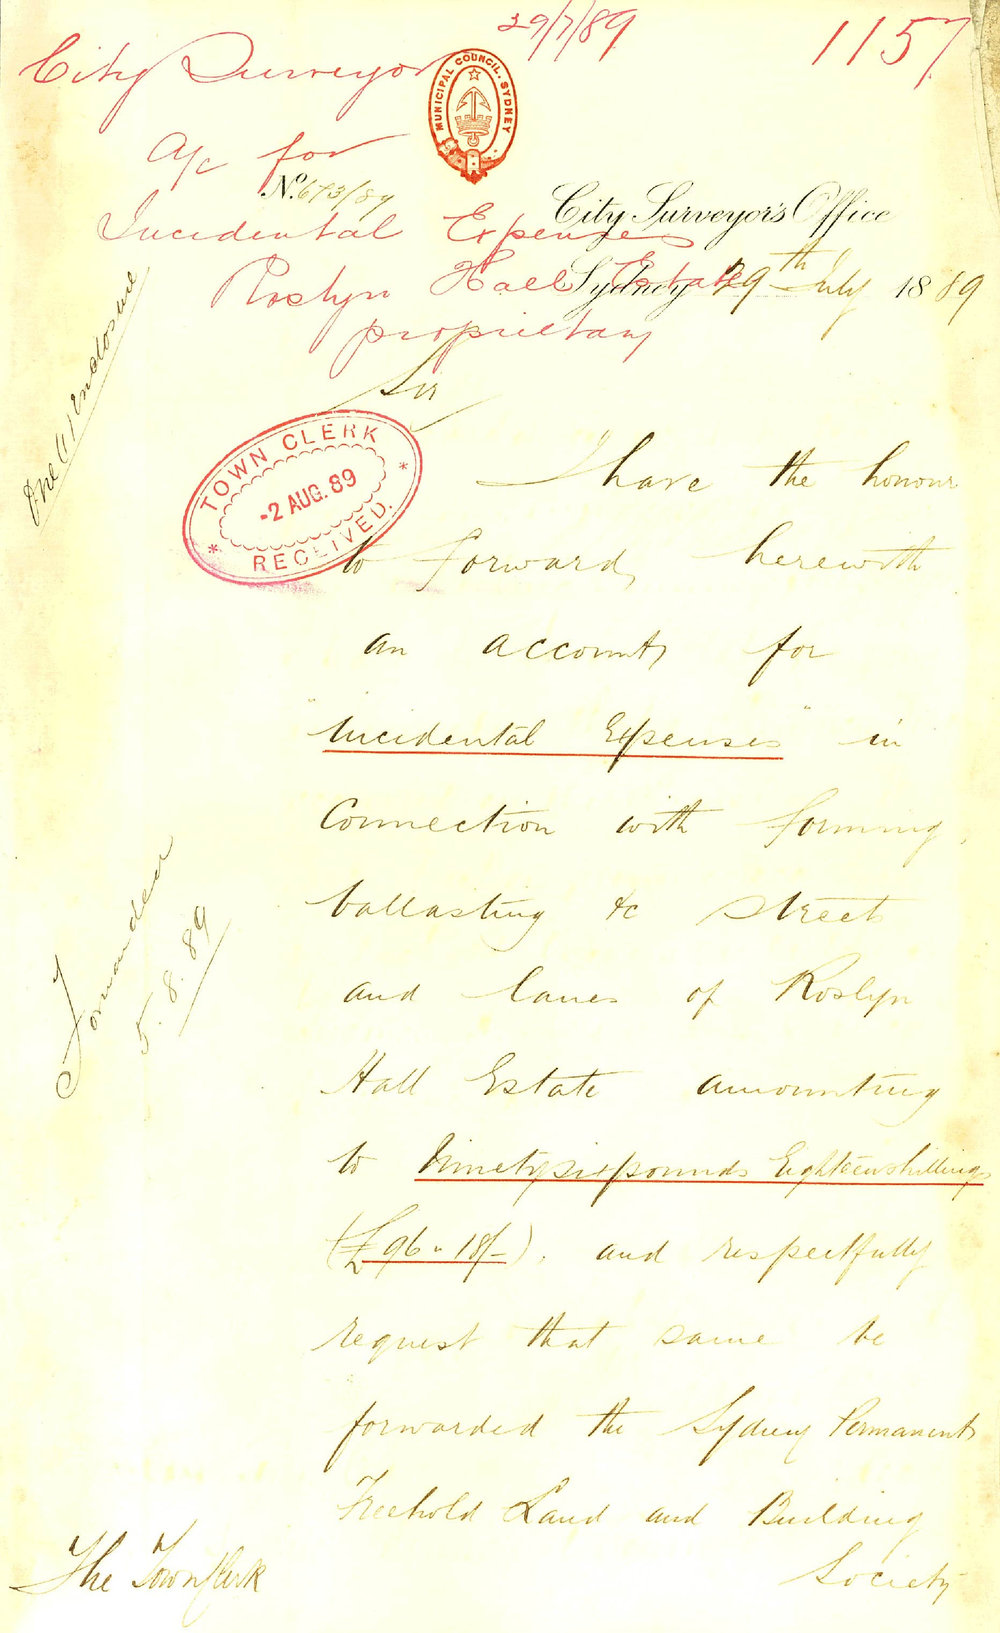 29/7/89
1157
City Surveyor
MUNICIPAL COUNCIL. SYDNEY
A/c for
No. 673/89
Incidental Expenses
City Surveyor's Office
Roslyn Hall Estate
Sydney 29th July 1889
proprietary
One (1) Enclosure
Sir
TOWN CLERK
-2 AUG. 89
RECEIVED.
I have the honour
to forward herewith
an account for
"Incidental Expenses" in
connection with forming,
ballasting &c street
and lanes of Roslyn
Hall Estate amounting
to Ninetysixpounds Eighteenshillings
(£96 " 18/-). and respectfully
request that same be
forwarded the Sydney Permanent
Freehold Land and Building
Society
The Town Clerk
5.8.89